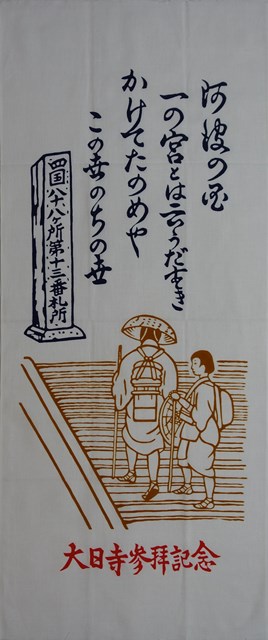 阿波の国
一の宮とは云うだすき
かけてたのめや
この世のちの世
四国八十八ケ所第十三番札所
大日寺参拝記念